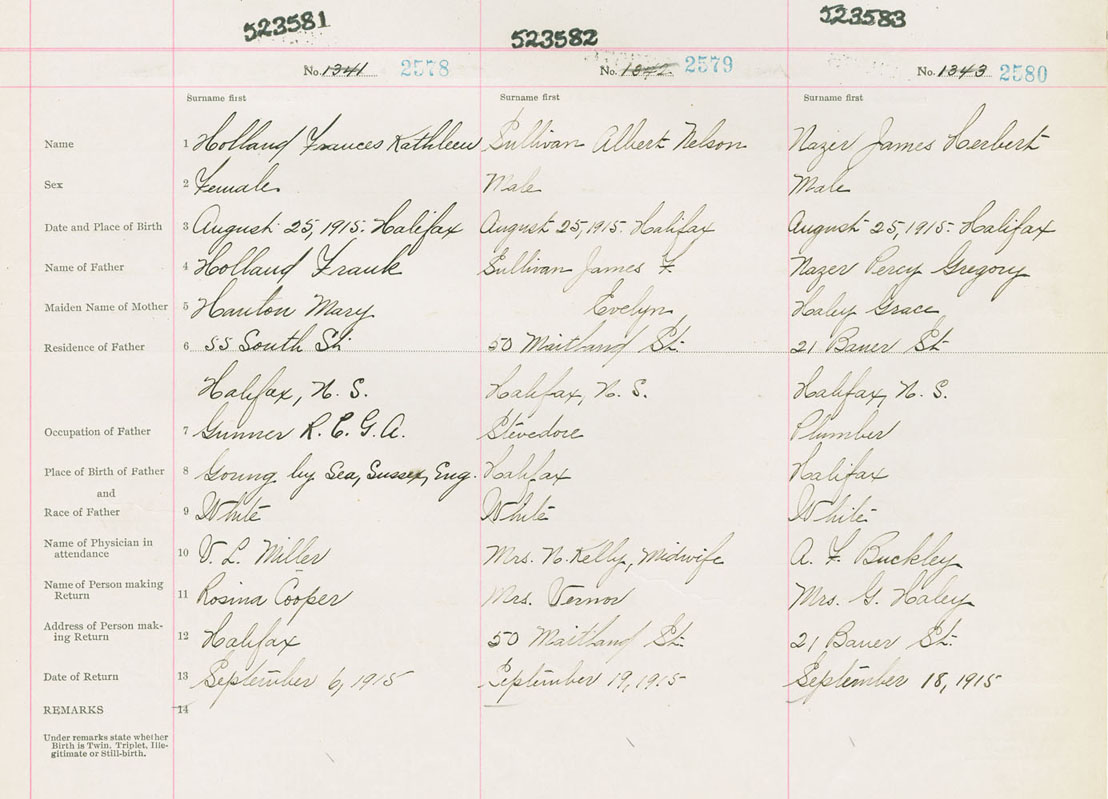 523581 523582 523583
No. 1341 2578 No. 1342 2579 No. 1343 2580
Surname first Surname first Surname first
Name 1 Holland Frances Kathleen Sullivan Albert Nelson Nazer James Herbert
Sex 2 Female. Male Male
Date and Place of Birth 3 August 25, 1915. Halifax August 25, 1915. Halifax August 25, 1915. Halifax
Name of Father 4 Holland Frank Sullivan James F. Nazer Percy Gregory
Maiden Name of Mother 5 Hanton Mary Evelyn Haley Grace
Residence of Father 6 55 South St. 50 Maitland St. 21 Bauer St.
Halifax, N. S. Halifax, N. S. Halifax, N. S.
Occupation of Father 7 Gunner R. C. G. A. Stevedore Plumber
Place of Birth of Father 8 by Sea, Sussex, Eng. Halifax Halifax
and
Race of Father 9 White White White
Name of Physician in
attendance 10 V. L. Miller Mrs. N. Kelly, Midwife A. F. Buckley
Name of Person making
Return 11 Rosina Cooper Mrs. Vernor Mrs. G. Haley
Address of Person mak-
ing Return 12 Halifax 50 Maitland St. 21 Bauer St.
Date of Return 13 September 6, 1915 September 19, 1915 September 18, 1915
REMARKS 14
Under remarks state whether
Birth is Twin. Triplet, Ille-
gitimate or Still-birth.